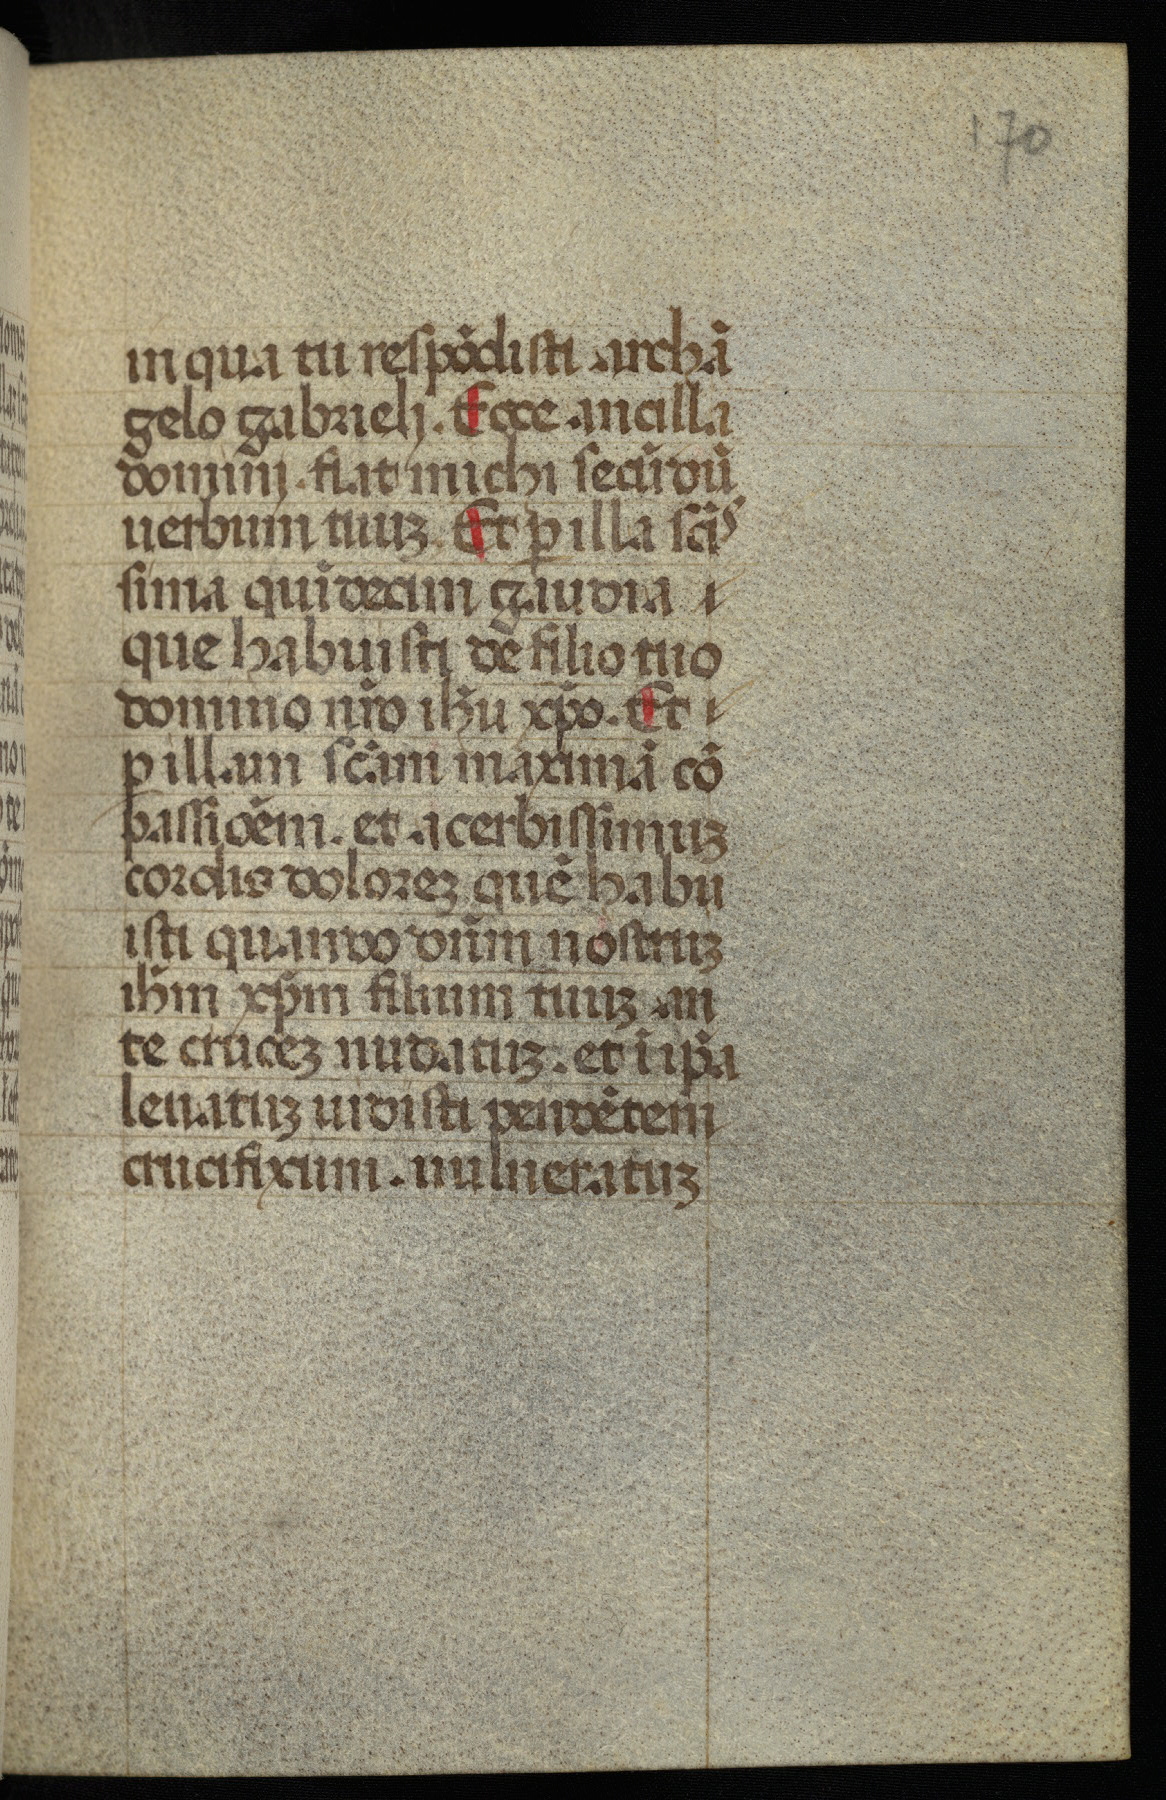 170
in qua tu respōdisti archā
gelo gabrieli. Ecce ancilla
domini. fiat michi secūdū
uerbum tuuꝫ. Et ꝑ illa scīs
sima quīdecim gaudia
que habuisti de filio tuo
domino nr̄o ih̄u xp̄o. Et
ꝑ illam scām maximā cō
passiōēm. et acerbissimuꝫ
cordis doloreꝫ quē habu
isti quando dn̄m nostruꝫ
ih̄m xp̄m filium tuuꝫ an
te cruceꝫ nudatuꝫ. et ī ip̄a
leuatuꝫ uidisti pendētem
crucifixum. uulneratuꝫ